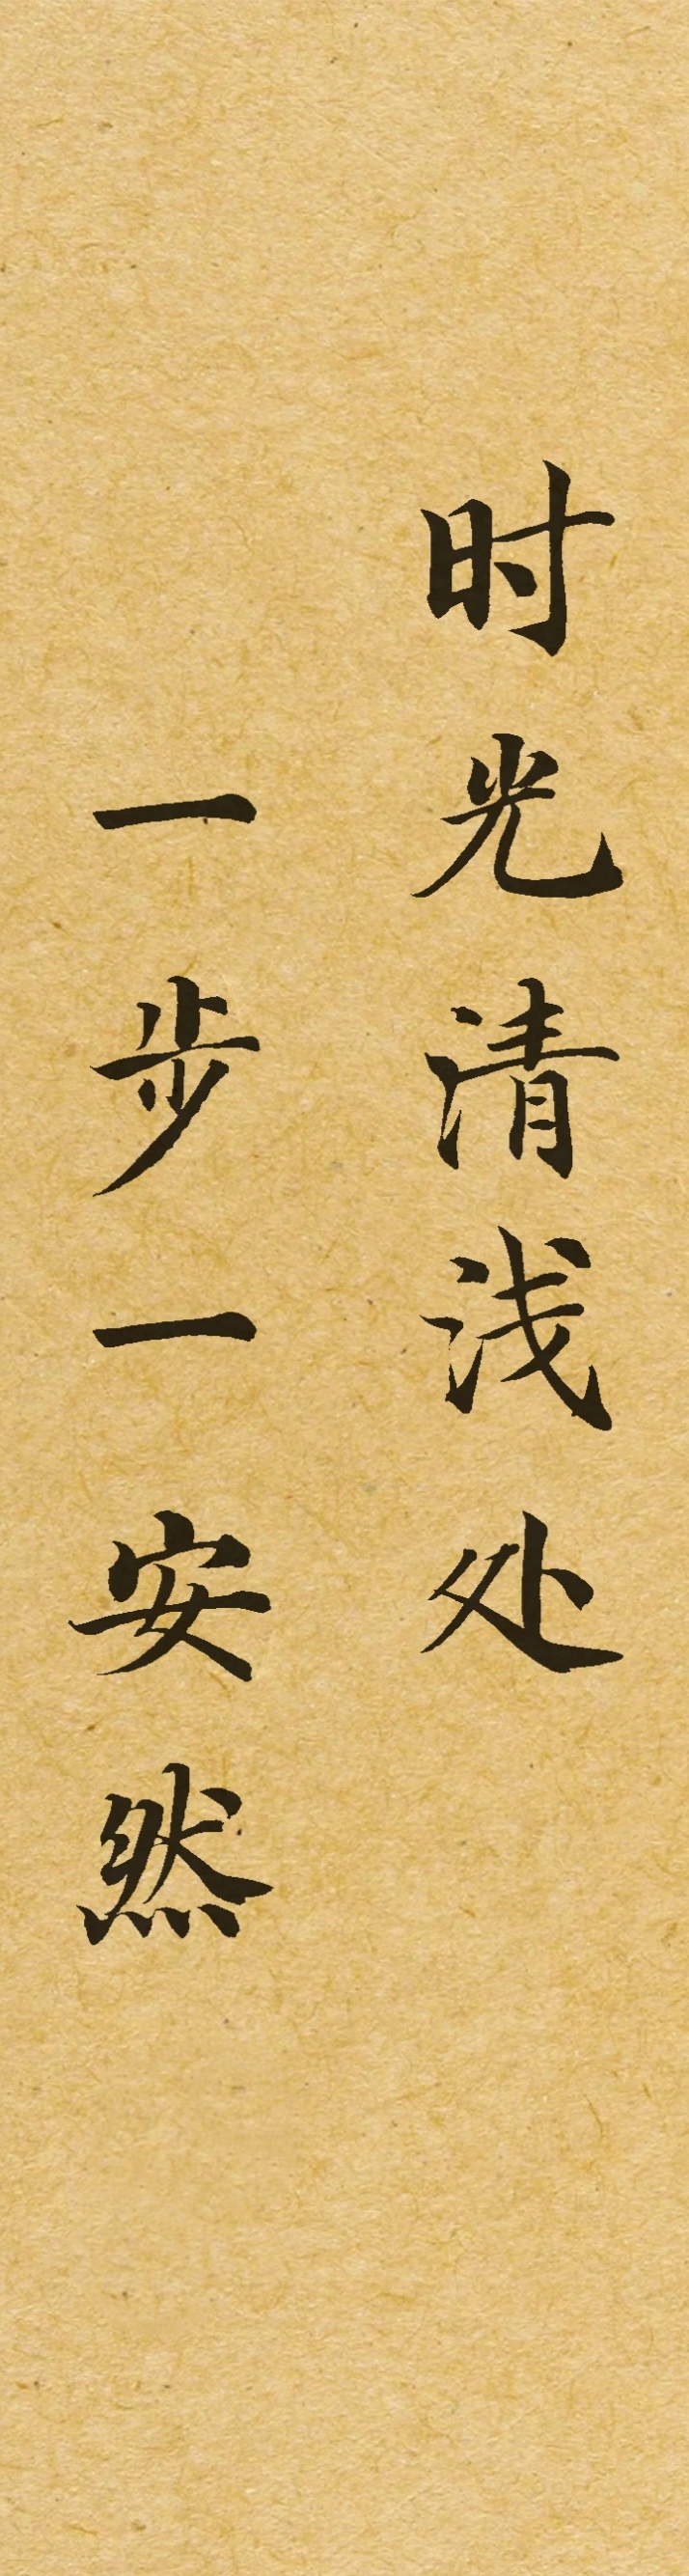 时光清浅处
一步一安然